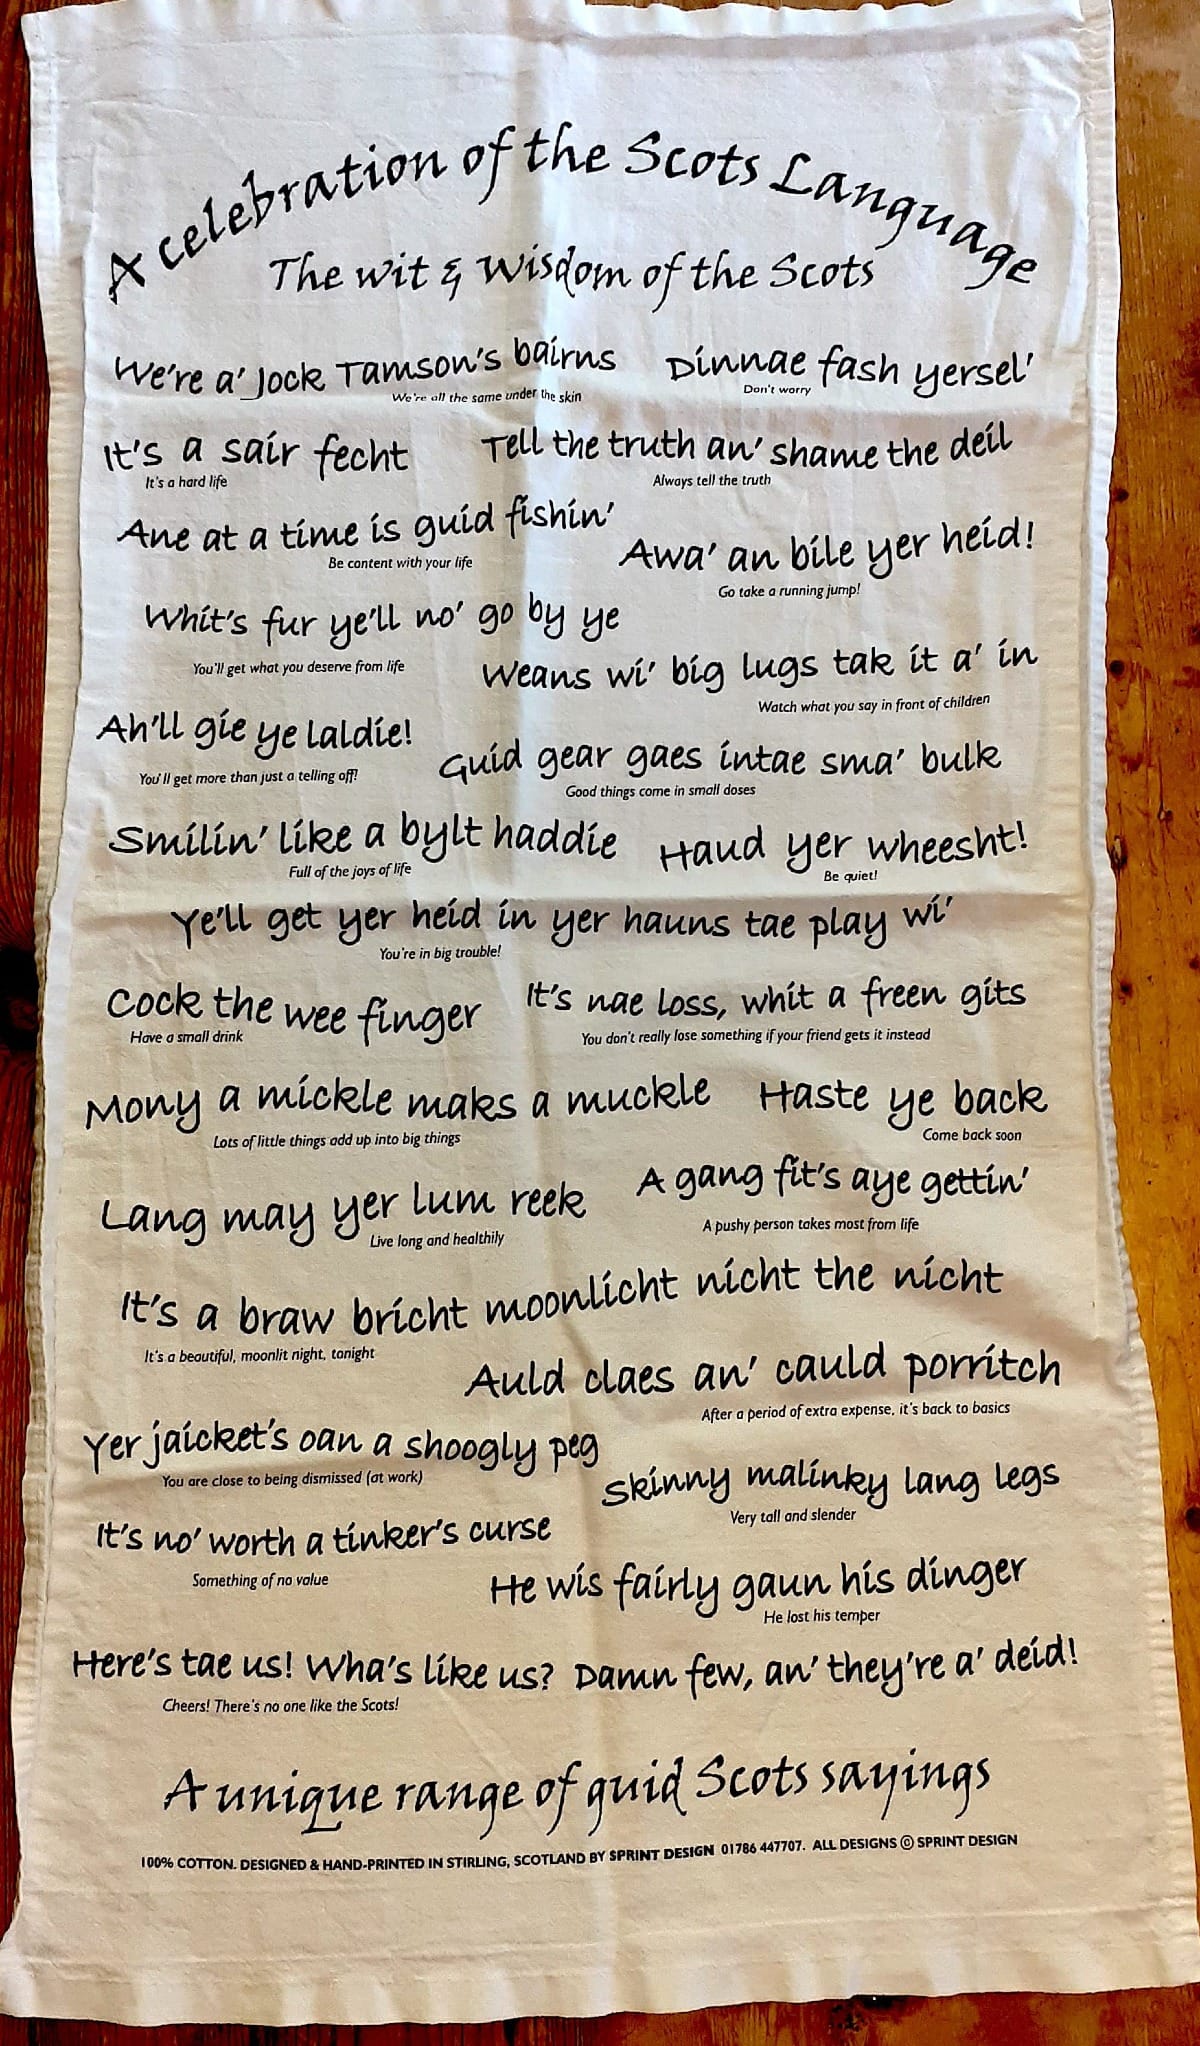 A celebration of the Scots Language
The wit & wisdom of the Scots
We're a' Jock Tamson's bairns
We're all the same under the skin
Dinnae fash yersel'
Don't worry
It's a sair fecht
It's a hard life
Tell the truth an' shame the deil
Always tell the truth
Ane at a time is guid fishin'
Be content with your life
Awa' an bile yer heid!
Go take a running jump!
Whit's fur ye'll no' go by ye
You'll get what you deserve from life
Weans wi' big lugs tak it a' in
Watch what you say in front of children
Ah'll gie ye laldie!
You'll get more than just a telling off!
Guid gear gaes intae sma' bulk
Good things come in small doses
Smilin' like a bylt haddie
Full of the joys of life
Haud yer wheesht!
Be quiet!
Ye'll get yer heid in yer hauns tae play wi'
You're in big trouble!
Cock the wee finger
Have a small drink
It's nae loss, whit a freen gits
You don't really lose something if your friend gets it instead
Mony a mickle maks a muckle
Lots of little things add up into big things
Haste ye back
Come back soon
Lang may yer lum reek
Live long and healthily
A gang fit's aye gettin'
A pushy person takes most from life
It's a braw bricht moonlicht nicht the nicht
It's a beautiful, moonlit night, tonight
Auld claes an' cauld porritch
After a period of extra expense, it's back to basics
Yer jaicket's oan a shoogly peg
You are close to being dismissed (at work)
Skinny malinky lang legs
Very tall and slender
It's no' worth a tinker's curse
Something of no value
He wis fairly gaun his dinger
He lost his temper
Here's tae us! Wha's like us? Damn few, an' they're a' deid!
Cheers! There's no one like the Scots!
A unique range of guid Scots sayings
100% COTTON. DESIGNED & HAND-PRINTED IN STIRLING, SCOTLAND BY SPRINT DESIGN 01786 447707. ALL DESIGNS © SPRINT DESIGN